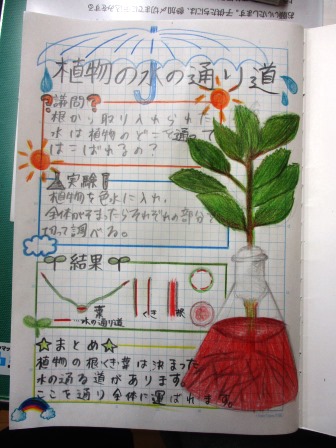 植物の水の通り道
?疑問?
根から取り入れられた
水は植物のどこを通って
はこばれるの?
実験
植物を色水に入れ、
全体がそまったらそれぞれの部分を
切って調べる。
結果
葉
くき
根
水の通り道
☆まとめ☆
植物の根くき葉は決まった
水の通る道があります。
ここを通り全体に運ばれます。